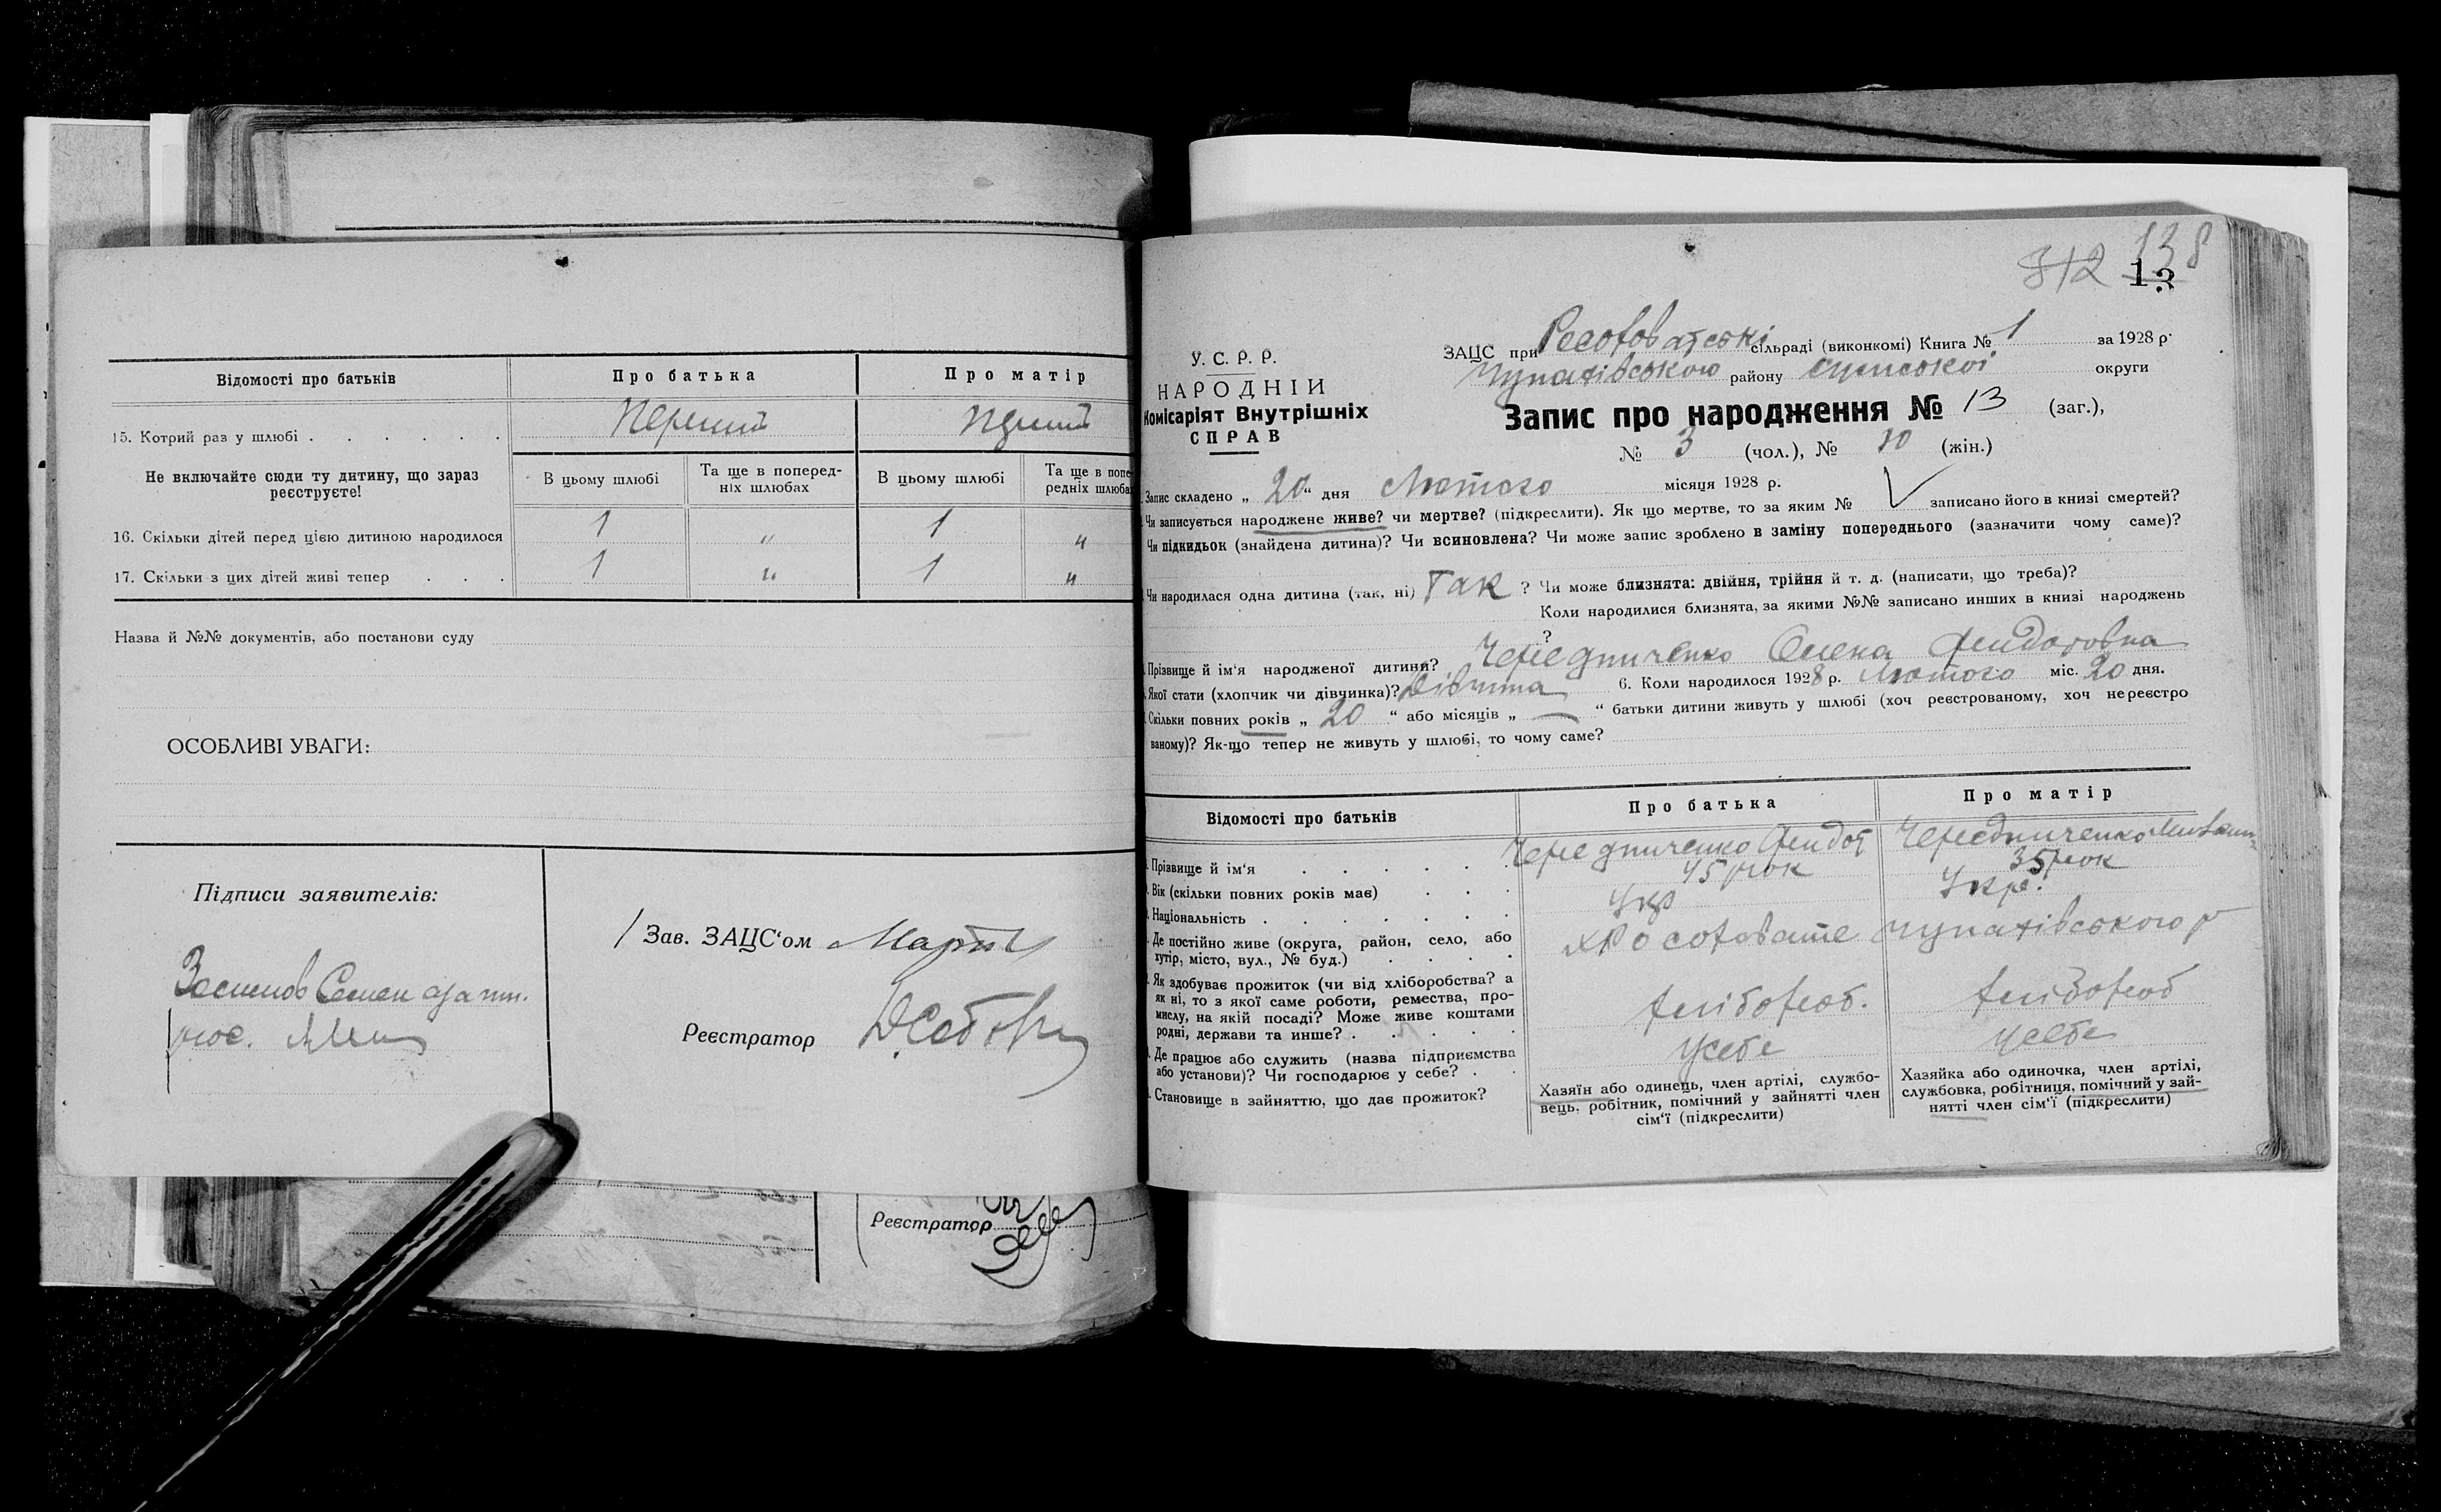 Відомості про батьків
Про батька
Про матір
15. Котрий раз у шлюбі
Перший
Не включайте сюди ту дитину, що зараз
реєструєте!
В цьому шлюбі
Та ще в поперед-
ніх шлюбах
В цьому шлюбі
Та ще в попе
редніх шлюба
16. Скільки дітей перед цією дитиною народилося
1 " 1 "
17. Скільки з цих дітей живі тепер . . .
1 " 1 "
Назва й №№ документів, або постанови суду
ОСОБЛИВІ УВАГИ:
Підписи заявителів:
Семен
Зав. ЗАЦС'ом
Реєстратор
Реєстратор
312 138
13
У. С. Р. Р.
НАРОДНІЙ
Комісаріят Внутрішніх
СПРАВ
ЗАЦС при сільраді (виконкомі) Книга № 1 за 1928 р.
Чупахівського району Сумської округи
Запис про народження № 13 (заг.),
№ 3 (чол.), № 10 (жін.)
Запис складено „ 20 " дня Лютого місяця 1928 р.
Чи записується народжене живе? чи мертве? (підкреслити). Як що мертве, то за яким № записано його в книзі смертей?
Чи підкидьок (знайдена дитина)? Чи всиновлена? Чи може запис зроблено в заміну попереднього (зазначити чому саме)?
Чи народилася одна дитина (так, ні) Так ? Чи може близнята: двійня, трійня й т. д. (написати, що треба)?
Коли народилися близнята, за якими №№ записано инших в книзі народжень
?
Прізвище й ім'я народженої дитини? Чередниченко Олена
Якої статі (хлопчик чи дівчинка)? Дівчина 6. Коли народилося 1928 р. Лютого міс. 20 дня.
Скільки повних років „ 20 " або місяців „ — " батьки дитини живуть у шлюбі (хоч реєстрованому, хоч нереєстро
ваному)? Як-що тепер не живуть у шлюбі, то чому саме?
Відомості про батьків
Про батька
Про матір
Прізвище й ім'я
Чередниченко
Чередниченко
Вік (скільки повних років має)
45 рок
35 рок
Національність
Укр
Укр.
Де постійно живе (округа, район, село, або
хутір, місто, вул., № буд.)
Чупахівського р
Як здобуває прожиток (чи від хліборобства? а
як ні, то з якої саме роботи, ремества, про-
мислу, на якій посаді? Може живе коштами
родні, держави та инше?
хлібороб.
хлібороб
Де працює або служить (назва підприємства
або установи)? Чи господарює у себе?
У себе
У себе
Становище в зайняттю, що дає прожиток?
Хазяїн або одинець, член артілі, службо-
вець, робітник, помічний у зайнятті член
сім'ї (підкреслити)
Хазяйка або одиночка, член артілі,
службовка, робітниця, помічний у зай-
нятті член сім'ї (підкреслити)